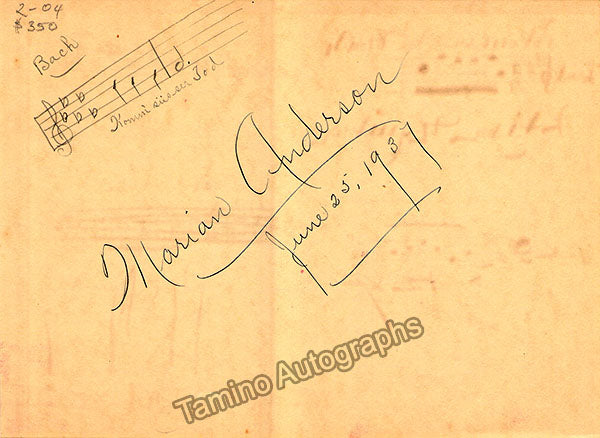 2-04
$350
Bach
Komm' süsser Tod
Marian Anderson
June 25, 1937
Tamino Autographs